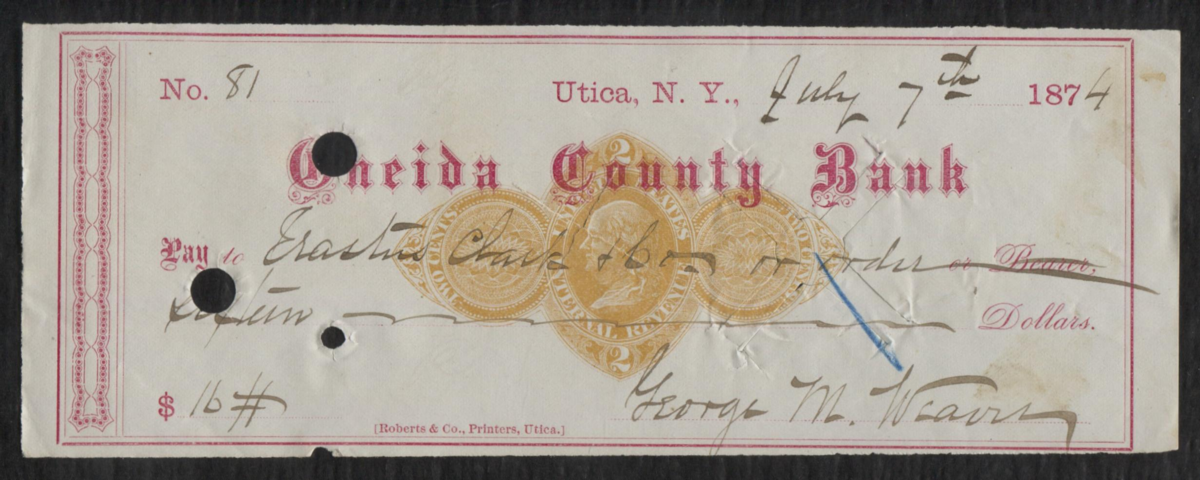 No. 81 Utica, N. Y., July 7th 1874
Oneida County Bank
Pay to Erastus Clark & Co. or order or Bearer,
Sixteen Dollars.
$ 16 #
George M. Weaver
[Roberts & Co., Printers, Utica.]
2
UNITED STATES
INTERNAL REVENUE
TWO CENTS
TWO CENTS
2